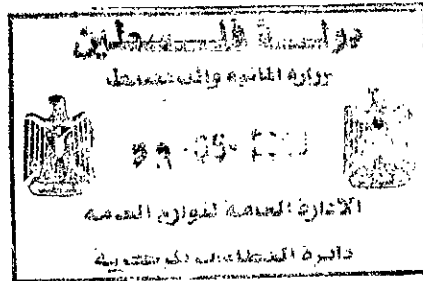 دولة فلسطين
وزارة المالية والتخطيط
-05-
الادارة العامة للوازم العامة
دائرة العطاءات المركزية